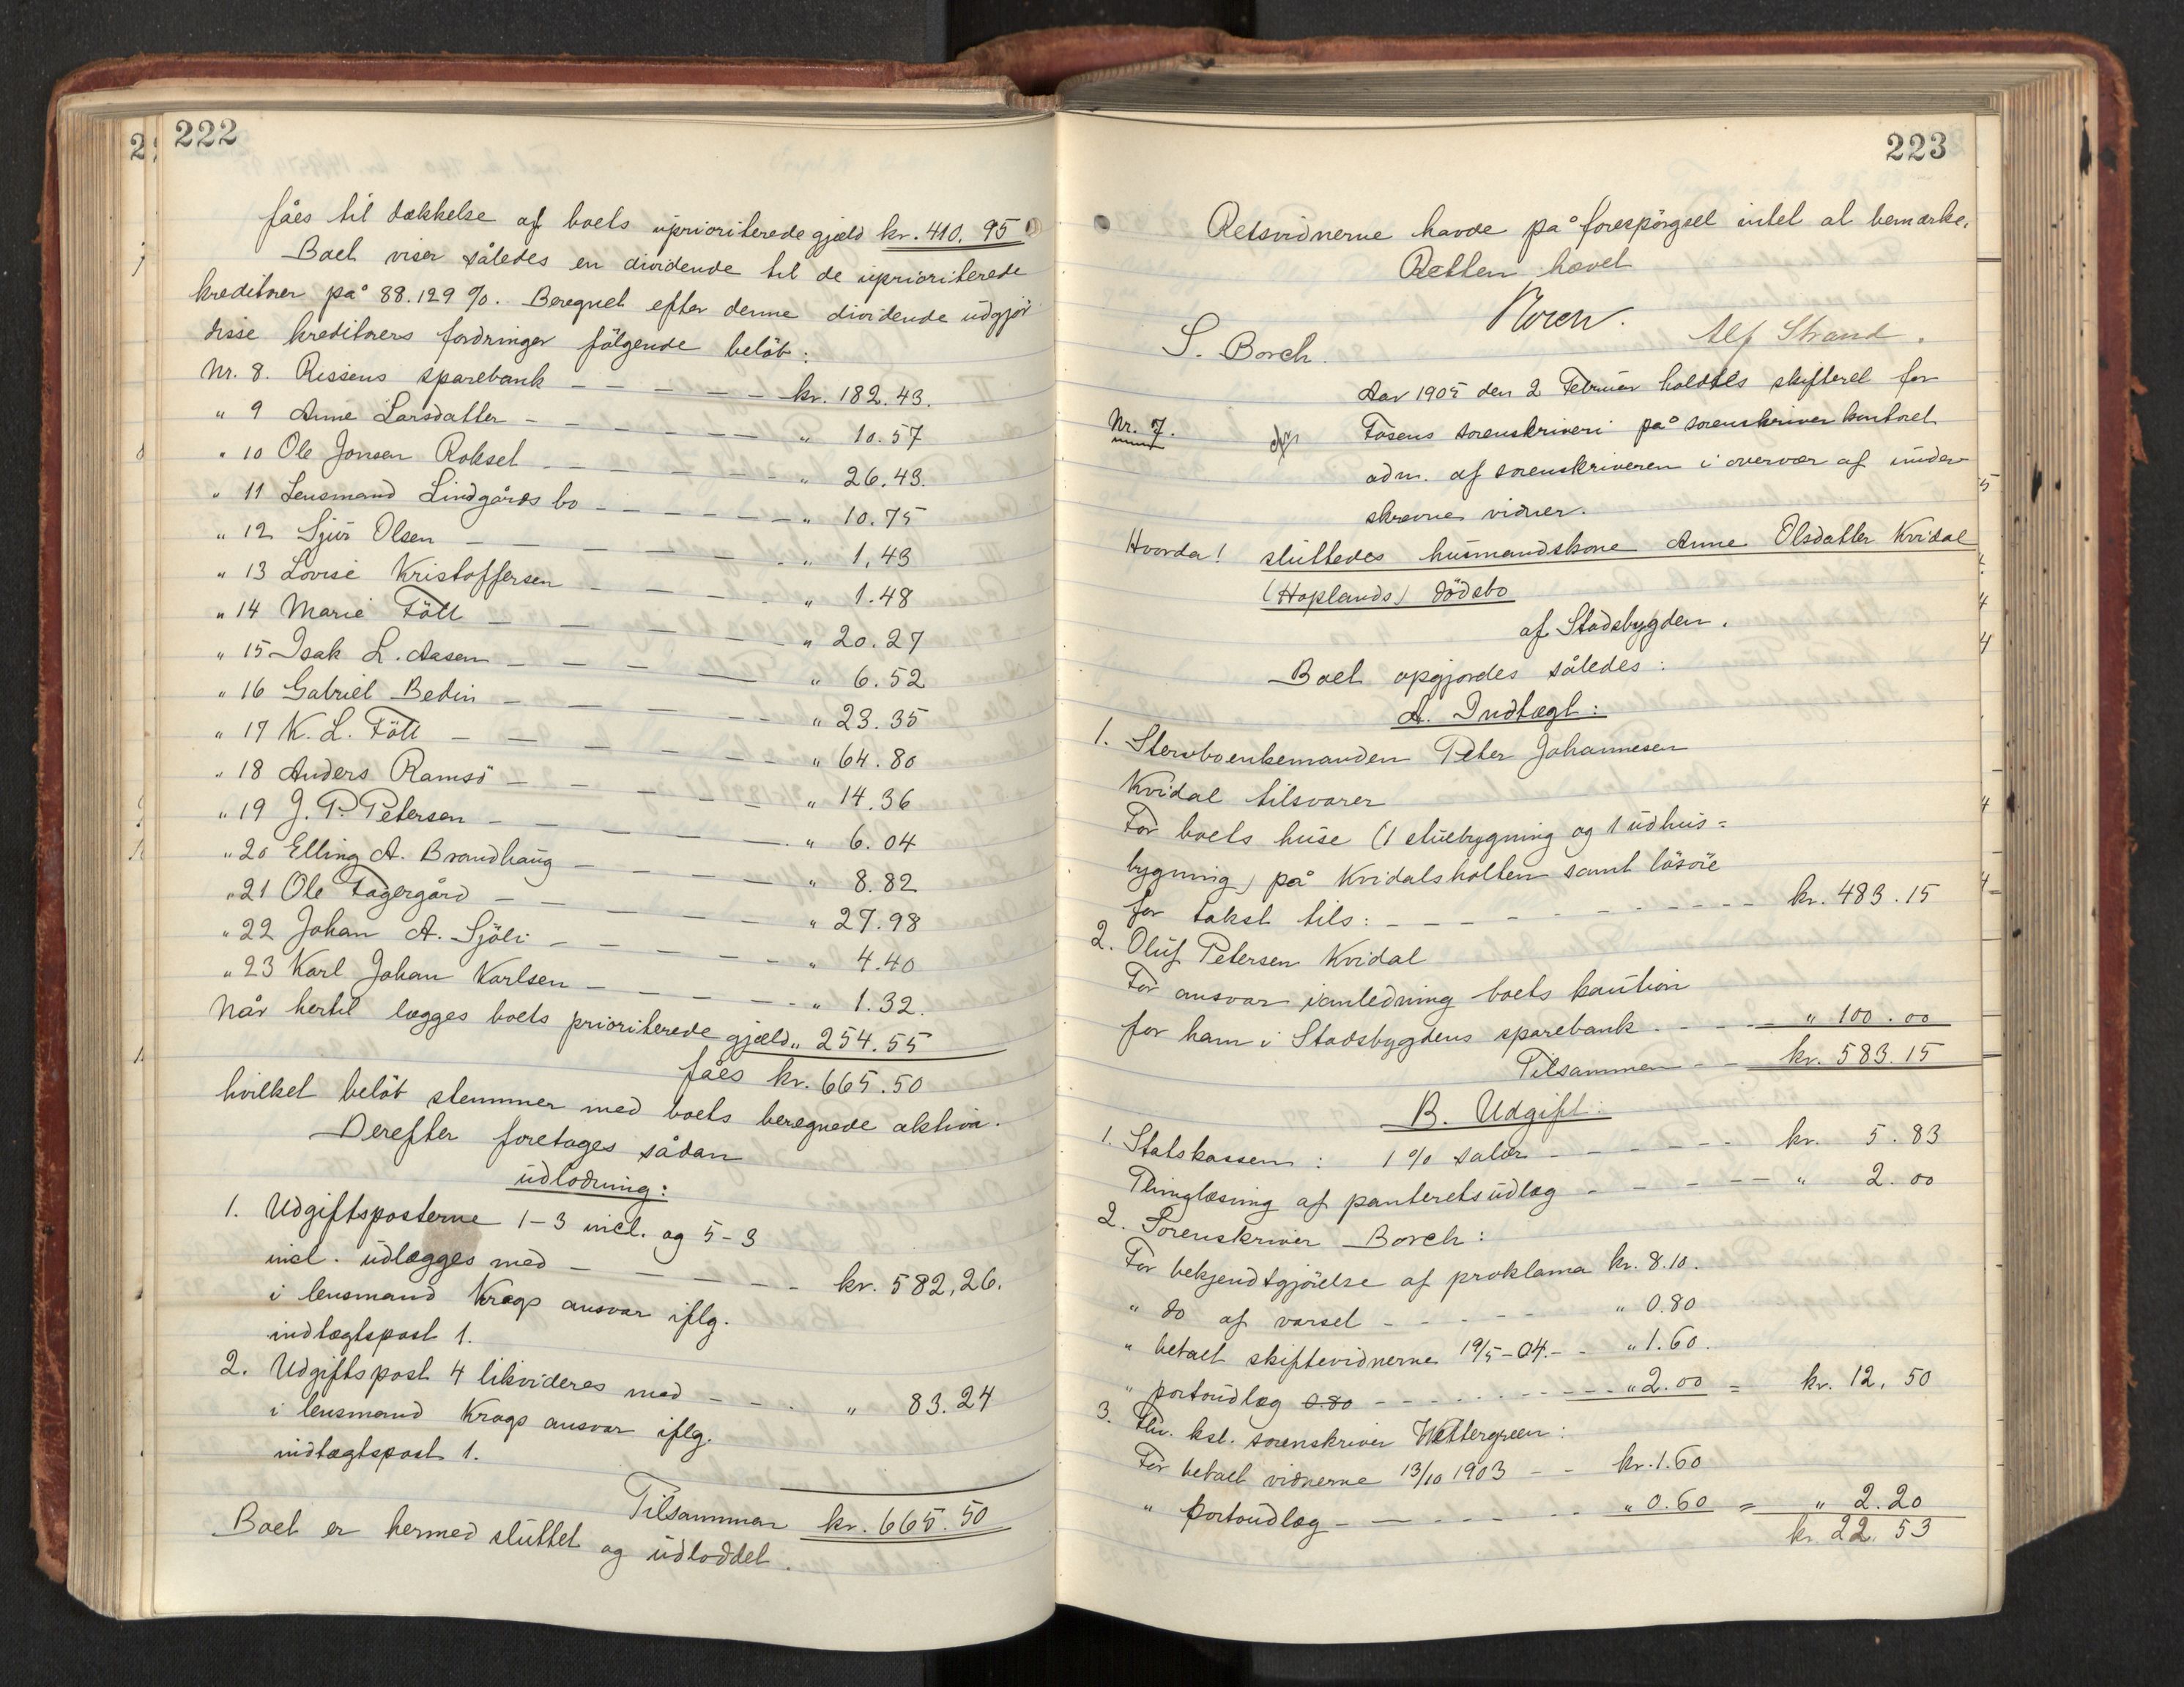 222
fåes til dækkelse af boets uprioriterede gjæld kr. 410.95
Boet viser således en dividende til de uprioriterede
kreditorer på 88.129 %. Beregnet efter denne dividende udgjör
disse kreditorers fordringer fölgende belöb:
Nr. 8. Rissens sparebank - - - - - kr. 182.43.
" 9 Anne Larsdatter - - - - - - " 10.57
" 10 Ole Jonsen Roksel - - - - - - " 26.43.
" 11 Lensmand Lindgårds bo - - - - - - " 10.75
" 12 Sjur Olsen - - - - - - " 1,43
" 13 Lovise Kristoffersen - - - - - " 1.48
" 14 Marie Föll - - - - - - " 20.27
" 15 Isak L. Aasen - - - - - " 6.52
" 16 Gabriel Bedin - - - - - - " 23.35
" 17 K. L. Föll - - - - - - " 64.80
" 18 Anders Ramsö - - - - - - " 14.36
" 19 J. P. Petersen - - - - - - " 6.04
" 20 Elling A. Brandhaug - - - - - " 8.82
" 21 Ole Fagergård - - - - - - " 27.98
" 22 Johan A. Sjöli - - - - - - " 4.40
" 23 Karl Johan Karlsen - - - - - - " 1.32.
Når hertil lægges boets prioriterede gjæld " 254.55
fåes kr. 665.50
hvilket belöb stemmer med boets beregnede aktiva.
Derefter foretages sådan
udlodning:
1. Udgiftsposterne 1-3 incl. og 5-3
incl. udlægges med - - - - - kr. 582,26.
i lensmand Krogs ansvar iflg.
indtægtspost 1.
2. Udgiftspost 4 likvideres med - - - " 83.24
i lensmand Krogs ansvar iflg.
indtægtspost 1.
Tilsammen kr. 665.50
Boet er hermed sluttet og udloddet.
223
Retsvidnerne havde på forespörgsel intet at bemærke.
Retten hævet
Noren.
S. Borch. Alf Strand.
Aar 1905 den 2 Februar holdtes skifteret for
Nr. 7. Fosens sorenskriveri på sorenskriverkontoret
adm. af sorenskriveren i overvær af under-
skrevne vidner.
Hvorda! sluttedes husmandskone Anne Olsdatter Kvidal
(Hoplands) dödsbo
af Stadsbygden.
Boet opgjordes således:
A. Indtægt:
1. Stervboenkemanden Peter Johannesen
Kvidal tilsvarer
For boets huse (1 stuebygning og 1 udhus=
bygning) på Kvidalsholten samt lösöre
for takst tils: - - - - - - - - kr. 483.15
2. Oluf Petersen Kvidal
For ansvar i anledning boets kaution
for ham i Stadsbygdens sparebank - - - - " 100.00
Tilsammen - - kr. 583.15
B. Udgift:
1. Statskassen: 1 % salær - - - - - kr. 5.83
Thinglæsning af panteretsudlæg - - - - - " 2.00
2. Sorenskriver Borch:
For bekjendtgjörelse af proklama kr. 8.10.
" do af varsel - - - - - " 0.80
" betalt skiftevidnerne 19/5-04. - - " 1.60.
" portoudlæg 0.80 - - - - - - " 2.00 = kr. 12.50
3. Fhv. kst. sorenskriver Wettergreen:
For betalt vidnerne 13/10 1903 - - kr. 1.60
" Portoudlæg - - - - - - " 0.60 = " 2.20
kr. 22.53